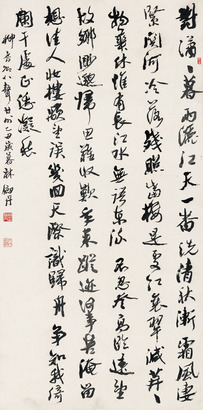 對瀟瀟暮雨灑江天一番洗清秋漸霜風凄
緊關河冷落殘照當樓是處紅衰翠減苒苒
物華休惟有長江水無語東流不忍登高臨遠望
故鄉渺邈歸思難收歎年來蹤跡何事苦淹留
想佳人妝樓顒望誤幾回天際識歸舟爭知我倚
闌干處正恁凝愁
柳八聲甘州乙丑歲暮林劍丹